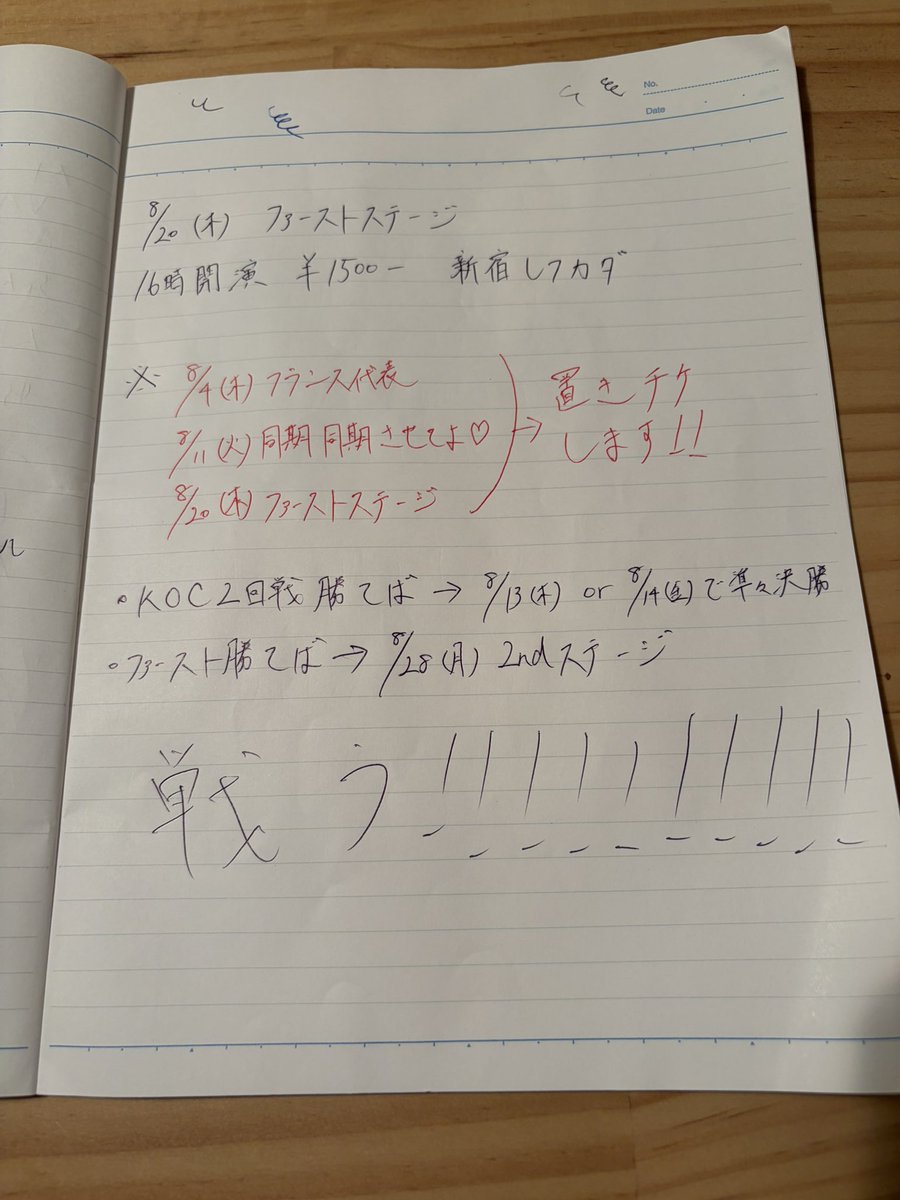 No.
Date
8/20(木) ファーストステージ
16時開演 ¥1500- 新宿レフカダ
※ 8/4(木)フランス代表
8/11(火)同期同期させてよ♡
8/20(木)ファーストステージ
→ 置きチケ
します!!
・KOC2回戦勝てば→8/13(木) or 8/14(金)で準々決勝
・ファースト勝てば→8/28(月) 2ndステージ
戦う!!!!!!!!!!